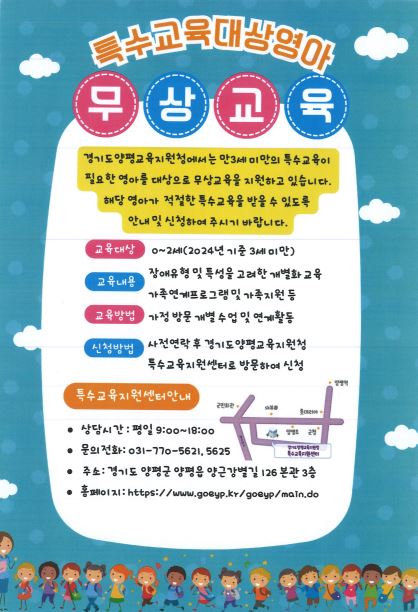 특수교육대상영아
무상교육
경기도양평교육지원청에서는 만3세 미만의 특수교육이
필요한 영아를 대상으로 무상교육을 지원하고 있습니다.
해당 영아가 적절한 특수교육을 받을 수 있도록
안내 및 신청하여 주시기 바랍니다.
교육대상 0~3세(2024년 기준 3세 미만)
교육내용 장애유형 및 특성을 고려한 개별화 교육
가족연계프로그램 및 가족지원 등
교육방법 가정 방문 개별 수업 및 연계활동
신청방법 사전연락 후 경기도양평교육지원청
특수교육지원센터로 방문하여 신청
특수교육지원센터안내
양평역
군민회관
sk주유소
롯데리아
양평초 군청
경기도양평교육지원청
특수교육지원센터
• 상담시간 : 평일 9:00~18:00
• 문의전화: 031-770-5621, 5625
• 주소: 경기도 양평군 양평읍 양근강변길 126 본관 3층
• 홈페이지: https://www.goeyp.kr/goeyp/main.do